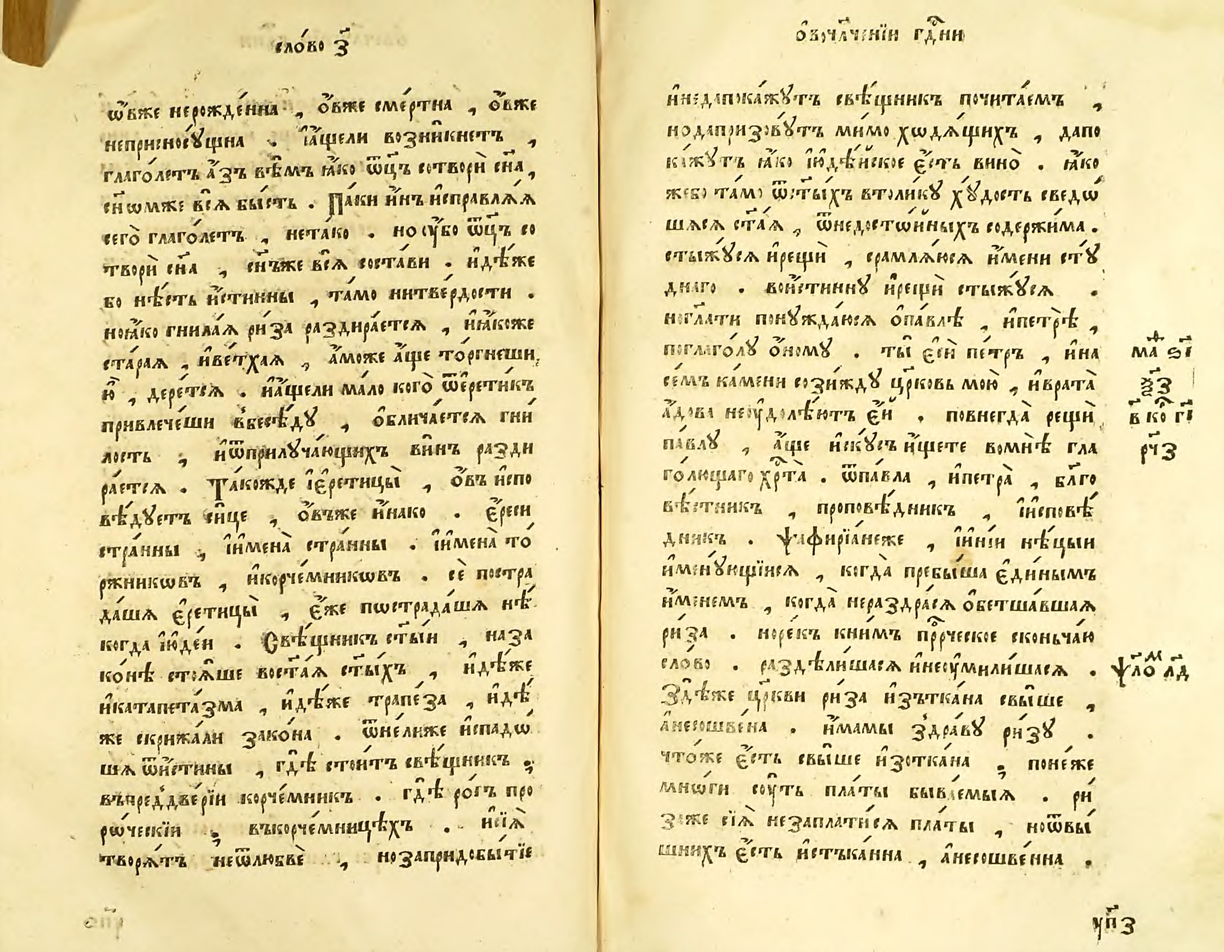 сло́во з҃
ѡ҆́вже нерожде́нна , ѻ҆́вже сме́ртна , ѻ҆́вже
неприсносꙋ́щна . і҆а҆́щели возни́кнетъ ,
глаго́летъ а҆́зъ вѣ́мъ ꙗ҆́ко ѿц҃ъ сотворѝ сн҃а ,
сн҃омже всѧ̀ бы́сть . Па́ки и҆́нъ и҆справлѧ́ѧ
сего̀ глаго́летъ , нета́ко . но ᲂу҆́бо ѿц҃ъ со
творѝ сн҃а , сн҃ъже всѧ̀ соста́ви . и҆дѣ́же
бо нѣ́сть и҆́стинны , та́мо нитве́рдости .
ноꙗ҆́ко гнила́ѧ ри́за раздира́етсѧ , и҆ꙗ҆́коже
ста́раѧ , и҆ве́тхаѧ , а҆́може а҆́ще то́ргнеши,
ю҆̀ , дере́тсѧ . и҆а҆́щели мало кого̀ ѿе҆рети́къ
привлече́ши в̾бесѣ́дꙋ , ѻ҆блича́етсѧ гни
лость , и҆ѿприлꙋча́ющихъ ви́нъ разди
ра́етсѧ . Та́кожде і҆е҆рети́цы , ѻ҆́въ и҆спо
вѣ́дꙋетъ си́це , ѻ҆́въже и҆́нако . є҆́реси
стра́нны , и҆и҆мена̀ стра́нны . и҆и҆мена̀ то́
ржникѡвъ , и҆корче́мникѡвъ . сѐ постра
да́шѧ є҆рети́цы , є҆́же пѡстрада́шѧ нѣ́
когда і҆ꙋде́и . Свѣ́щникъ ст҃ы́и , наза
ко́нѣ стоѧ́ше вост҃а́ѧ ст҃ы́хъ , и҆дѣ́же
и҆катапета́зма , и҆дѣ́же трапе́за , и҆дѣ́
же скрижа́ли зако́на . ѿне́лиже и҆спадѡ́
шѧ ѿи́стины , гдѣ̀ стои́тъ свѣ́щникъ ;
въпреддве́рїи корче́мникъ . гдѣ̀ ро́гъ про
рѡ́ческїи ; въкорче́мницѣхъ . и҆сїѧ̀
творѧ́тъ неѿлюбвѐ , нозапридобы́тїе
ѻ҆бꙋчл҃че́нїи гдⷭ҇ни
и҆недапока́жꙋтъ свѣ́щникъ почита́емъ ,
нодапризовꙋ́тъ ми́мо хѡдѧ́щихъ , дапо
ка́жꙋтъ ꙗ҆́ко і҆ꙋде́йское є҆́сть вино̀ . ꙗ҆́ко
жебо та́мо ѿст҃ы́хъ втоли́кꙋ хꙋ́дость сведѡ́
шѧсѧ ст҃а́ѧ , ѿнедостѡ́йныхъ содержи́ма .
стыжꙋ́сѧ и҆рещѝ , срамлѧ́юсѧ и҆́мени стꙋ́
днаго . вои́стиннꙋ и҆рещѝ стыжꙋ́сѧ .
ногл҃ати понꙋжда́юсѧ ѻ҆па́влѣ , и҆петрѣ̀ ,
поглаго́лꙋ ѻ҆́номꙋ . ты̀ є҆сѝ пе́тръ , и҆на
се́мъ ка́мени сози́ждꙋ цр҃ковь мою̀ , и҆врата̀
а҆́дова неᲂу҆долѣ́ютъ є҆́й . повнегда̀ рещѝ
па́влꙋ , а҆́ще и҆́скꙋсъ и҆́щете вомнѣ̀ гла
го́лющаго хрⷭ҇та̀ . ѿпа́вла , и҆петра̀ , бл҃го
вѣ́стникъ , проповѣ́дникъ , и҆и҆сповѣ́
дникъ . Ѱафирїа́неже , и҆и҆ні́и нѣ́цыи
и҆менꙋ́ющїисѧ , когда̀ пребы́ша є҆ди́нымъ
и҆́менемъ , когда̀ нераздра́сѧ ѻ҆бетша́вшаѧ
ри́за . норе́къ кни́мъ прⷪ҇ро́ческое сконьча́ю
сло́во . раздѣли́шасѧ и҆неᲂу҆мили́шасѧ .
Здѣ́же цр҃кви ри́за и҆зътка́на свы́ше ,
а҆несошве́на . и҆́мамы здра́вꙋ ри́зꙋ .
что́же є҆́сть свы́ше и҆зотка́на ; поне́же
мнѡ́ги сꙋ́ть пла́ты быва́емыѧ . ри́
за́же сїѧ̀ незаплати́сѧ пла́ты , ноѿвы́
шнихъ є҆́сть и҆стъка́нна , а҆несошве́нна .
маⷴ҇ ѕ҃і
з҃
в҃ коⷬ҇ г҃і
рч҃з
ѱаⷧ҇оⷨ л҃д
ꙋп҃з